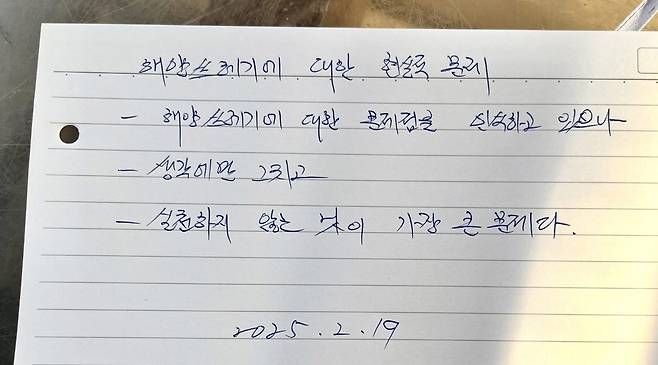 해양쓰레기에 대한 현실적 문제
- 해양쓰레기에 대한 문제점을 인식하고 있으나
- 생각에만 그치고
- 실천하지 않는 것이 가장 큰 문제다.
2025. 2. 19